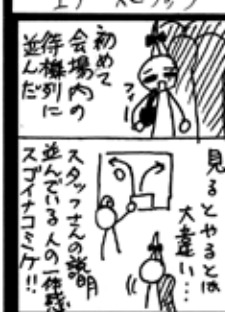 初めて
会場内の
待機列に
並んだ
フィー
見るとやるとは
大違い…
スタッフさんの説明
並んでいる人の一体感
スゴイナコミケ!!